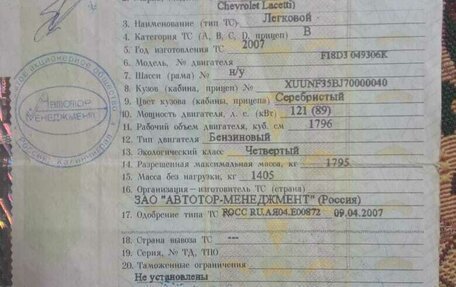 Chevrolet Lacetti)
3. Наименование (тип ТС) Легковой
4. Категория ТС (A, B, C, D, прицеп) B
5. Год изготовления ТС 2007
6. Модель, № двигателя F18D3 049306K
7. Шасси (рама) № н/у
8. Кузов (кабина, прицеп) № XUUNF35BJ70000040
9. Цвет кузова (кабины, прицепа) Серебристый
10. Мощность двигателя, л. с. (кВт) 121 (89)
11. Рабочий объем двигателя, куб. см 1796
12. Тип двигателя Бензиновый
13. Экологический класс Четвертый
14. Разрешенная максимальная масса, кг 1795
15. Масса без нагрузки, кг 1405
16. Организация–изготовитель ТС (страна)
ЗАО "АВТОТОР-МЕНЕДЖМЕНТ" (Россия)
17. Одобрение типа ТС № РОСС RU.АЯ04.Е00872 09.04.2007
18. Страна вывоза ТС ---
19. Серия, № ТД, ТПО
20. Таможенные ограничения
Не установлены
АВТОТОР
МЕНЕДЖМЕНТ
Россия, Калининград